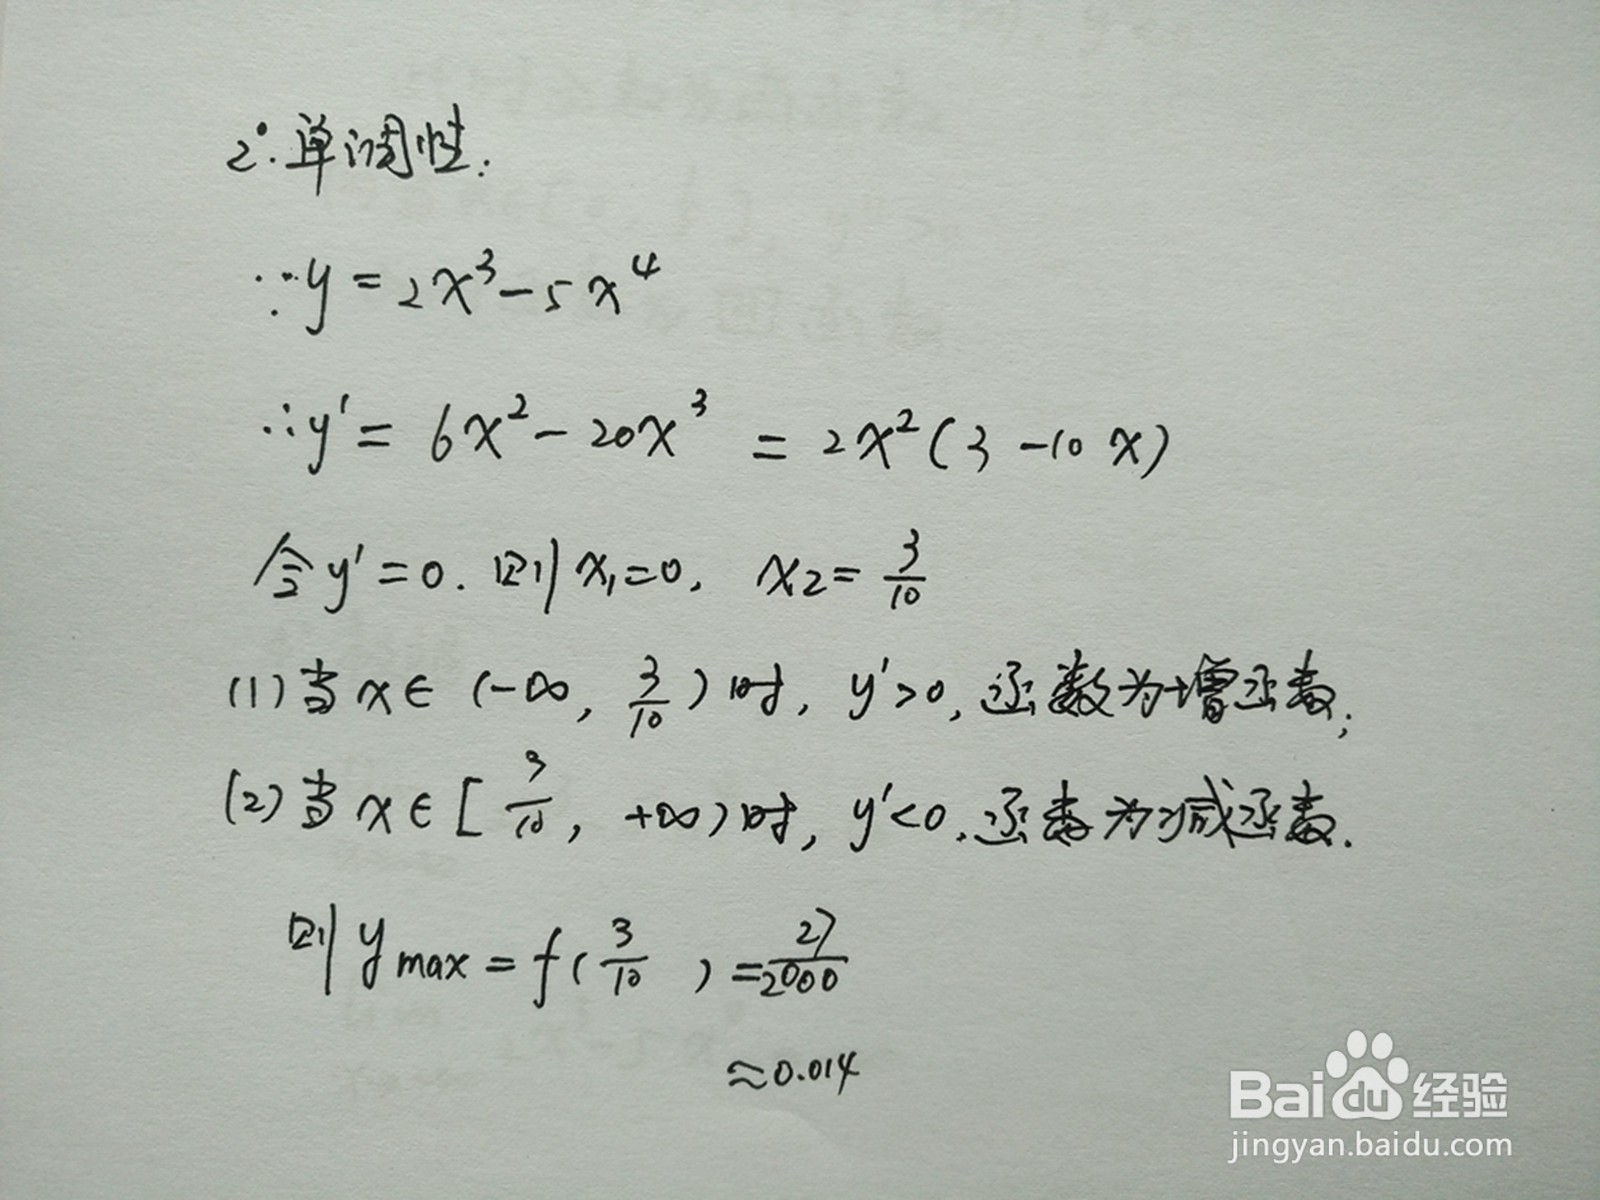 2°.单调性:
∵y=2x³-5x⁴
∴y'=6x²-20x³=2x²(3-10x)
令y'=0.则x₁=0,x₂=3/10
(1)当x∈(-∞,3/10)时,y'>0,函数为增函数;
(2)当x∈[3/10,+∞)时,y'<0.函数为减函数.
则ymax=f(3/10)=27/2000
≈0.014
Baidu经验
jingyan.baidu.com